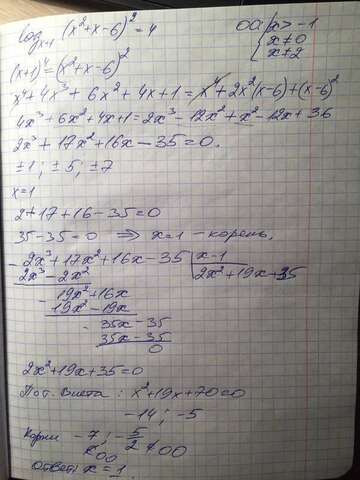 log_{x+1} (x²+x-6)² = 4
ОО: { x > -1
x ≠ 0
x ≠ 2
(x+1)⁴ = (x²+x-6)²
x⁴+4x³+6x²+4x+1 = x⁴+2x²(x-6)+(x-6)²
4x³+6x²+4x+1 = 2x³-12x²+x²-12x+36
2x³+17x²+16x-35=0.
±1; ±5; ±7
x=1
2+17+16-35=0
35-35=0 ⇒ x=1 - корень.
2x³+17x²+16x-35 | x-1
2x³-2x² | 2x²+19x+35
19x²+16x
19x²-19x
35x-35
35x-35
0
2x²+19x+35=0
По т. Виета: x²+19x+70=0
-14; -5
Корни -7; -5/2 ∉ ОО
∉ ОО
Ответ: x = 1.